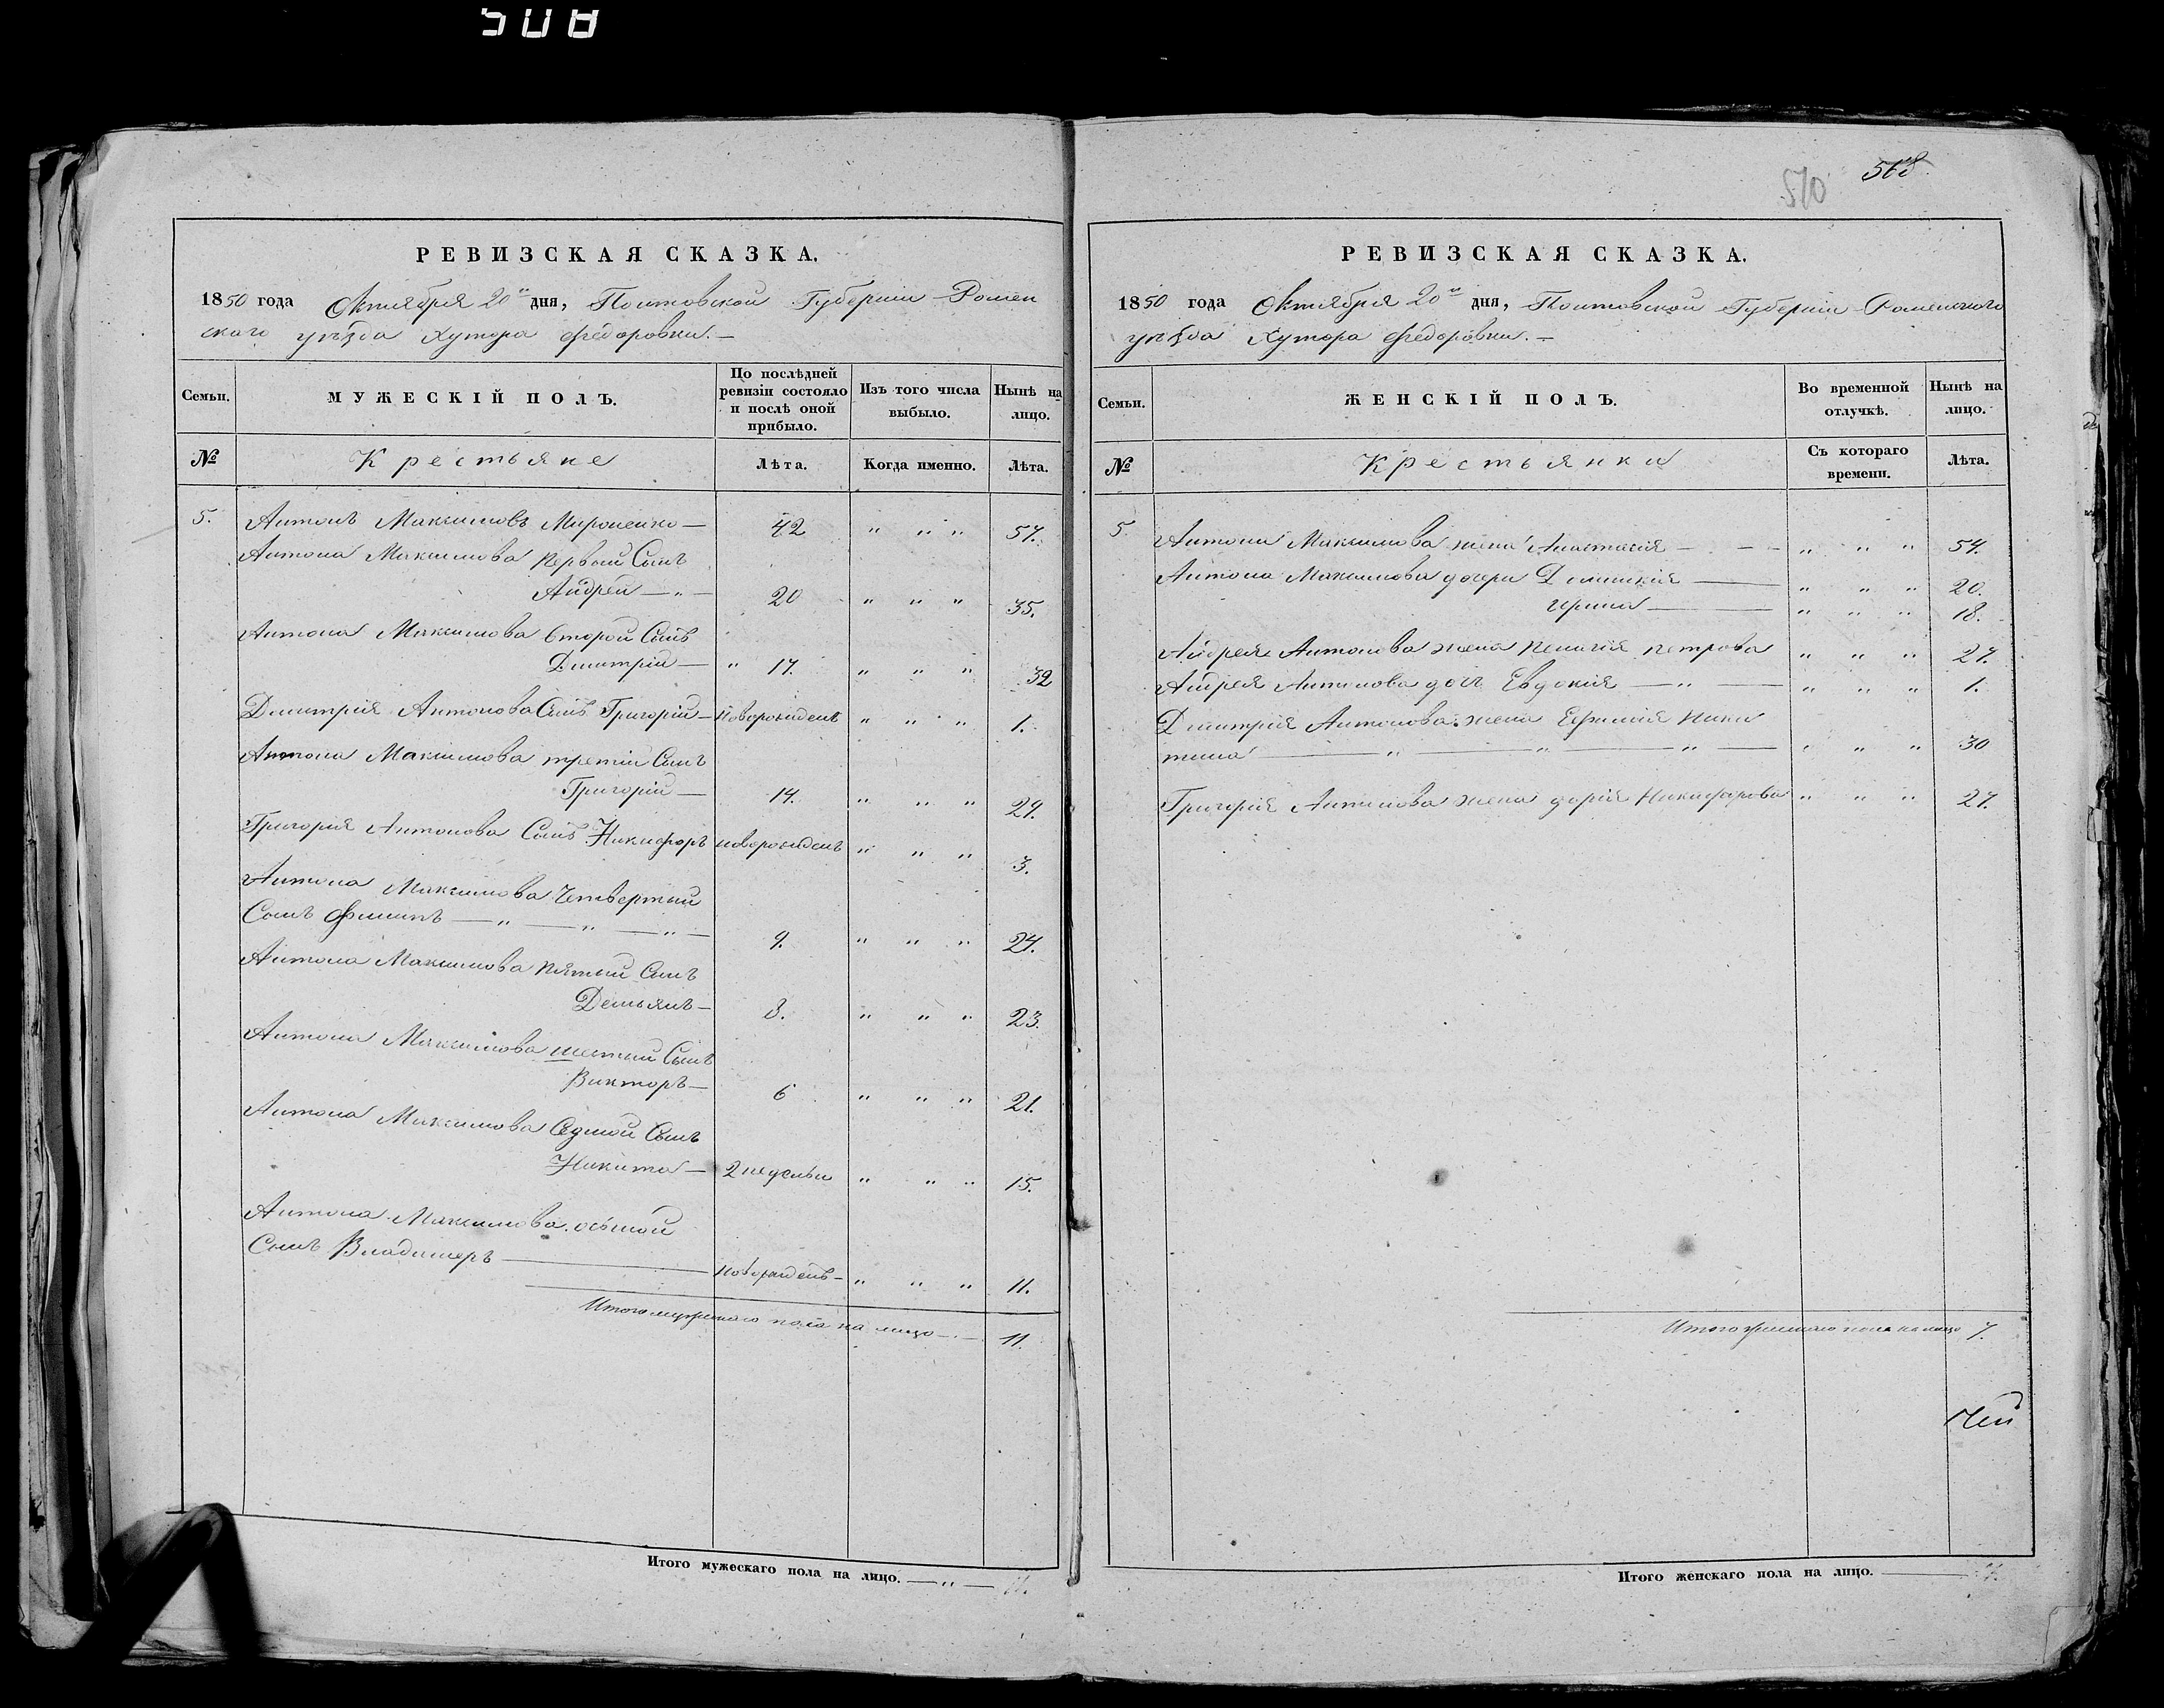 508
РЕВИЗСКАЯ СКАЗКА.
1850 года Октября 20го дня, Полтовской Губерніи Ромен
скаго уѣзда Хутора Федоровки.—
Семьи.
МУЖЕСКІЙ ПОЛЪ.
По послѣдней ревизіи состояло и послѣ оной прибыло.
Изъ того числа выбыло.
Нынѣ на лицо.
№ Крестьяне Лѣта. Когда именно. Лѣта.
5. Антонъ Максимовъ Мироненко — 42 " " " 57.
Антона Максимова первый Сынъ
Андрей — " — 20 " " " 35.
Антона Максимова Второй Сынъ
Дмитрій — " 17. " " " 32
Дмитрія Антонова Сынъ Григорій — Новорожденъ " " " 1.
Антона Максимова третій Сынъ
Григорій — 14. " " " 29.
Григорія Антонова Сынъ Никифоръ новорожденъ " " " 3.
Антона Максимова Четвертый
Сынъ Филипъ — " — " — " — 9. " " " 24.
Антона Максимова пятый Сынъ
Демьянъ — 8. " " " 23.
Антона Максимова шестый Сынъ
Викторъ — 6 " " " 21.
Антона Максимова Седмой Сынъ
Никита — 2 недельи " " " 15.
Антона Максимова осьмой
Сынъ Владимеръ — новорожденъ — " " " 11.
Итого мужескаго пола на лицо — 11.
Итого мужескаго пола на лицо. — " — 11.
570
568
РЕВИЗСКАЯ СКАЗКА.
1850 года Октября 20го дня, Полтовской Губерніи Роменского
уѣзда Хутора Федоровки.—
Семьи.
ЖЕНСКІЙ ПОЛЪ.
Во временной отлучкѣ.
Нынѣ на лицо.
№ Крестьянки Съ котораго времени. Лѣта.
5 Антона Максимова жена Анастасія — — — " " " 54.
Антона Максимова дочери Домникія — " " " 20.
Ирина — " " " 18.
Андрея Антонова жена Пелагія Петрова " " " 27.
Андрея Антонова дочъ Евдокія — " — " " " 1.
Дмитрія Антонова жена Ефимія Ники
тина — " — " — " — " " " 30
Григорія Антонова жена Дарія Никифорова " " " 27.
Итого женскаго пола на лицо 7.
Итого женскаго пола на лицо. — 7.